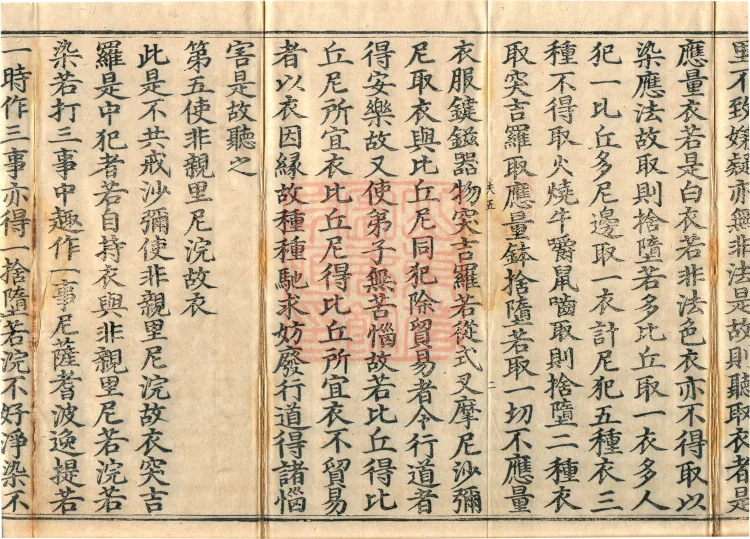 里不致嫌疑亦無非法是故則聽取衣者是
應量衣若是白衣若非法色衣亦不得取以
染應法故取則捨墮若多比丘取一衣多人
犯一比丘多尼邊取一衣計尼犯五種衣三
種不得取火燒牛嚼鼠嚙取則捨墮二種衣
取突吉羅取應量鉢捨墮若取一切不應量
衣服鍵鎡器物突吉羅若從式叉摩尼沙彌
夫五 二
尼取衣與比丘尼同犯除貿易者令行道者
得安樂故又使弟子無苦惱故若比丘得比
丘尼所宜衣比丘尼得比丘所宜衣不貿易
者以衣因緣故種種馳求妨廢行道得諸惱
害是故聽之
第五使非親里尼浣故衣
此是不共戒沙彌使非親里尼浣故衣突吉
羅是中犯者若自持衣與非親里尼若浣若
染若打三事中趣作一事尼薩耆波逸提若
一時作三事亦得一捨墮若浣不好淨染不